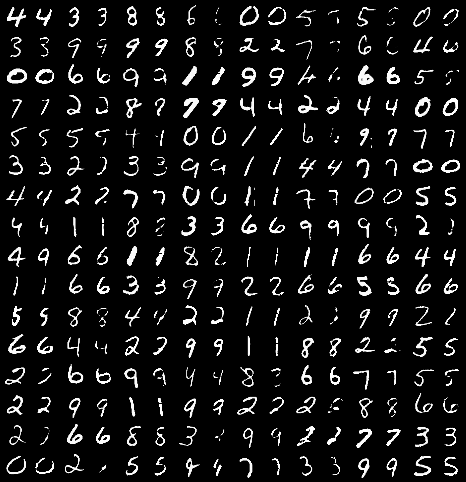 4 4 3 3 8 8 6 0 0 5 5 0 0
3 3 9 9 9 9 8 8 2 2 7 6 4
0 0 6 6 9 9 1 1 9 9 4 6 6 5
7 7 2 2 8 9 9 4 4 2 2 4 4 0 0
5 5 5 5 4 0 0 1 1 6 9 7 7
3 3 2 3 3 9 1 1 4 4 7 7 0 0
4 4 2 2 7 7 0 0 1 1 7 7 0 0 5 5
4 4 1 1 8 3 3 6 6 9 9 9 9 2
4 9 6 6 1 1 8 2 1 1 1 1 6 6 4 4
1 1 6 6 3 3 9 2 2 6 6 5 5 6 6
5 5 8 8 4 4 2 2 1 1 2 9 9 2
6 6 4 4 2 2 9 9 1 1 8 8 2 5 5
2 6 6 9 9 4 4 8 6 6 7 7 5 5
2 2 9 9 1 1 9 9 2 2 2 8 8 6 6
2 6 6 8 8 3 9 9 2 2 7 7 3 3
0 0 2 5 5 9 7 7 3 3 9 9 5 5